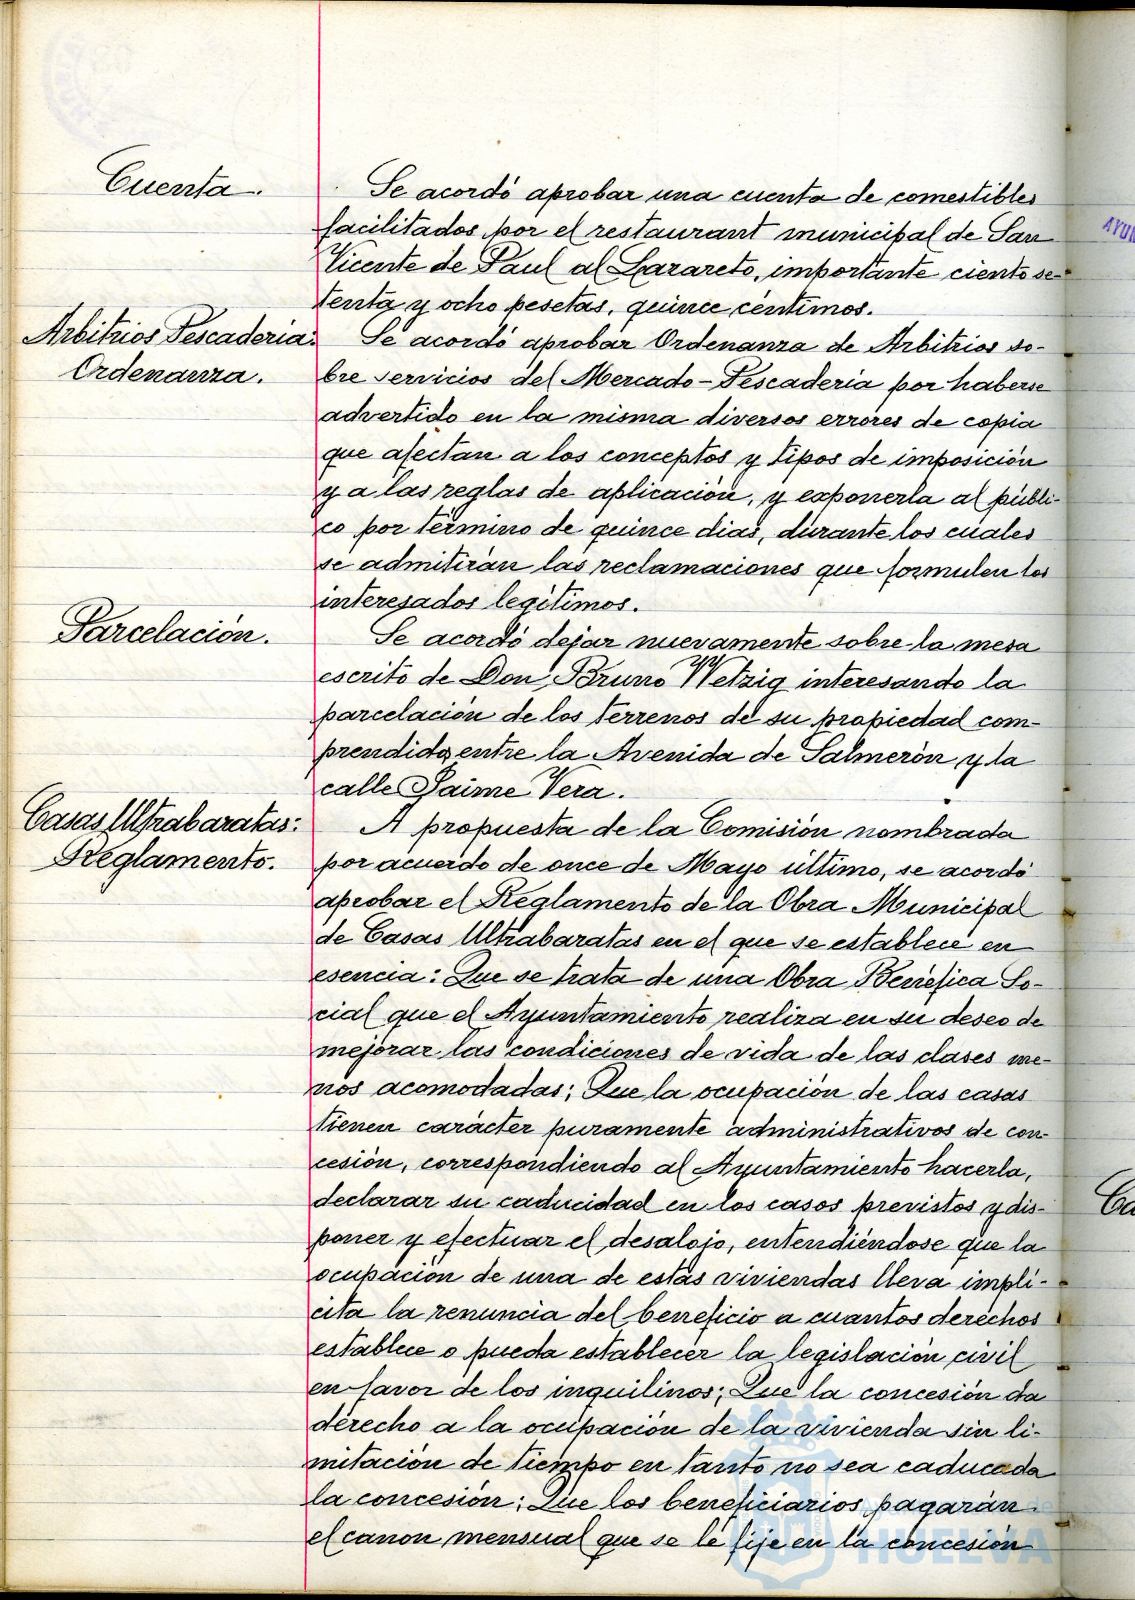 Cuenta.
Se acordó aprobar una cuenta de comestibles
facilitados por el restaurant municipal de San
Vicente de Paul al Lazareto, importante ciento se-
tenta y ocho pesetas, quince céntimos.
Arbitrios Pescaderia:
Ordenanza.
Se acordó aprobar Ordenanza de Arbitrios so-
bre servicios del Mercado-Pescaderia por haberse
advertido en la misma diversos errores de copia
que afectan a los conceptos y tipos de imposición
y a las reglas de aplicación, y exponerla al públi-
co por término de quince dias, durante los cuales
se admitirán las reclamaciones que formulen los
interesados legitimos.
Parcelación.
Se acordó dejar nuevamente sobre la mesa
escrito de Don Bruno Wetzig interesando la
parcelación de los terrenos de su propiedad com-
prendidos entre la Avenida de Salmerón y la
calle Jaime Vera.
Casas Ultrabaratas:
Reglamento.
A propuesta de la Comisión nombrada
por acuerdo de once de Mayo último, se acordó
aprobar el Reglamento de la Obra Municipal
de Casas Ultrabaratas en el que se establece en
esencia: Que se trata de una Obra Benéfica So-
cial que el Ayuntamiento realiza en su deseo de
mejorar las condiciones de vida de las clases me-
nos acomodadas; Que la ocupación de las casas
tienen carácter puramente administrativos de con-
cesión, correspondiendo al Ayuntamiento hacerla,
declarar su caducidad en los casos previstos y dis-
poner y efectuar el desalojo, entendiéndose que la
ocupación de una de estas viviendas lleva impli-
cita la renuncia del beneficio a cuantos derechos
establece o pueda establecer la legislación civil
en favor de los inquilinos; Que la concesión da
derecho a la ocupación de la vivienda sin li-
mitación de tiempo en tanto no sea caducada
la concesión; Que los beneficiarios pagarán
el canon mensual que se le fije en la concesión
HUELVA
AYUN
Ca